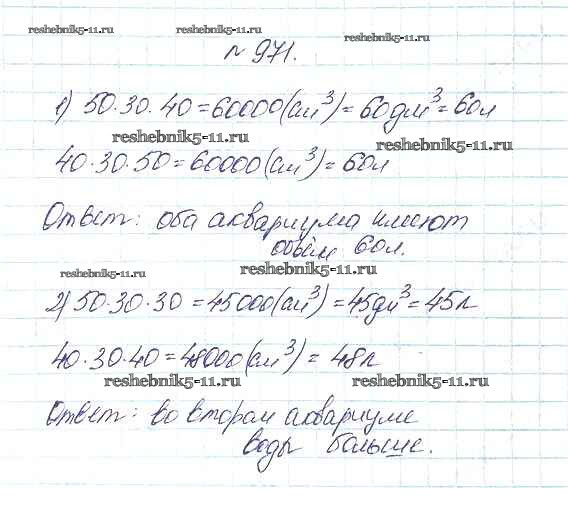 reshebnik5-11.ru reshebnik5-11.ru reshebnik5-11.ru
№ 971.
1) 50·30·40=60000(см³)=60дм³=60л
reshebnik5-11.ru reshebnik5-11.ru
40·30·50=60000(см³)=60л
Ответ: оба аквариума имеют
объём 60л.
reshebnik5-11.ru reshebnik5-11.ru
2) 50·30·30=45000(см³)=45дм³=45л
40·30·40=48000(см³)=48л
reshebnik5-11.ru reshebnik5-11.ru
Ответ: во втором аквариуме
воды больше.